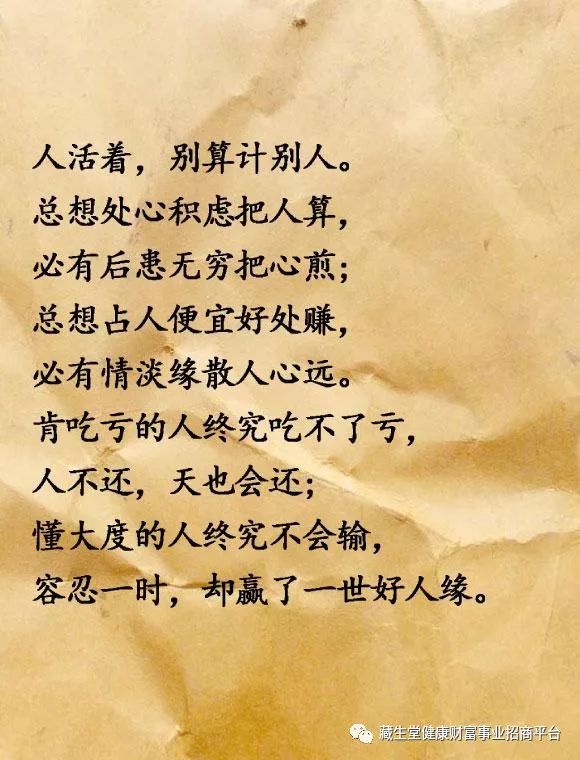 人活着，别算计别人。
总想处心积虑把人算，
必有后患无穷把心煎；
总想占人便宜好处赚，
必有情淡缘散人心远。
肯吃亏的人终究吃不了亏，
人不还，天也会还；
懂大度的人终究不会输，
容忍一时，却赢了一世好人缘。
藏生堂健康财富事业招商平台